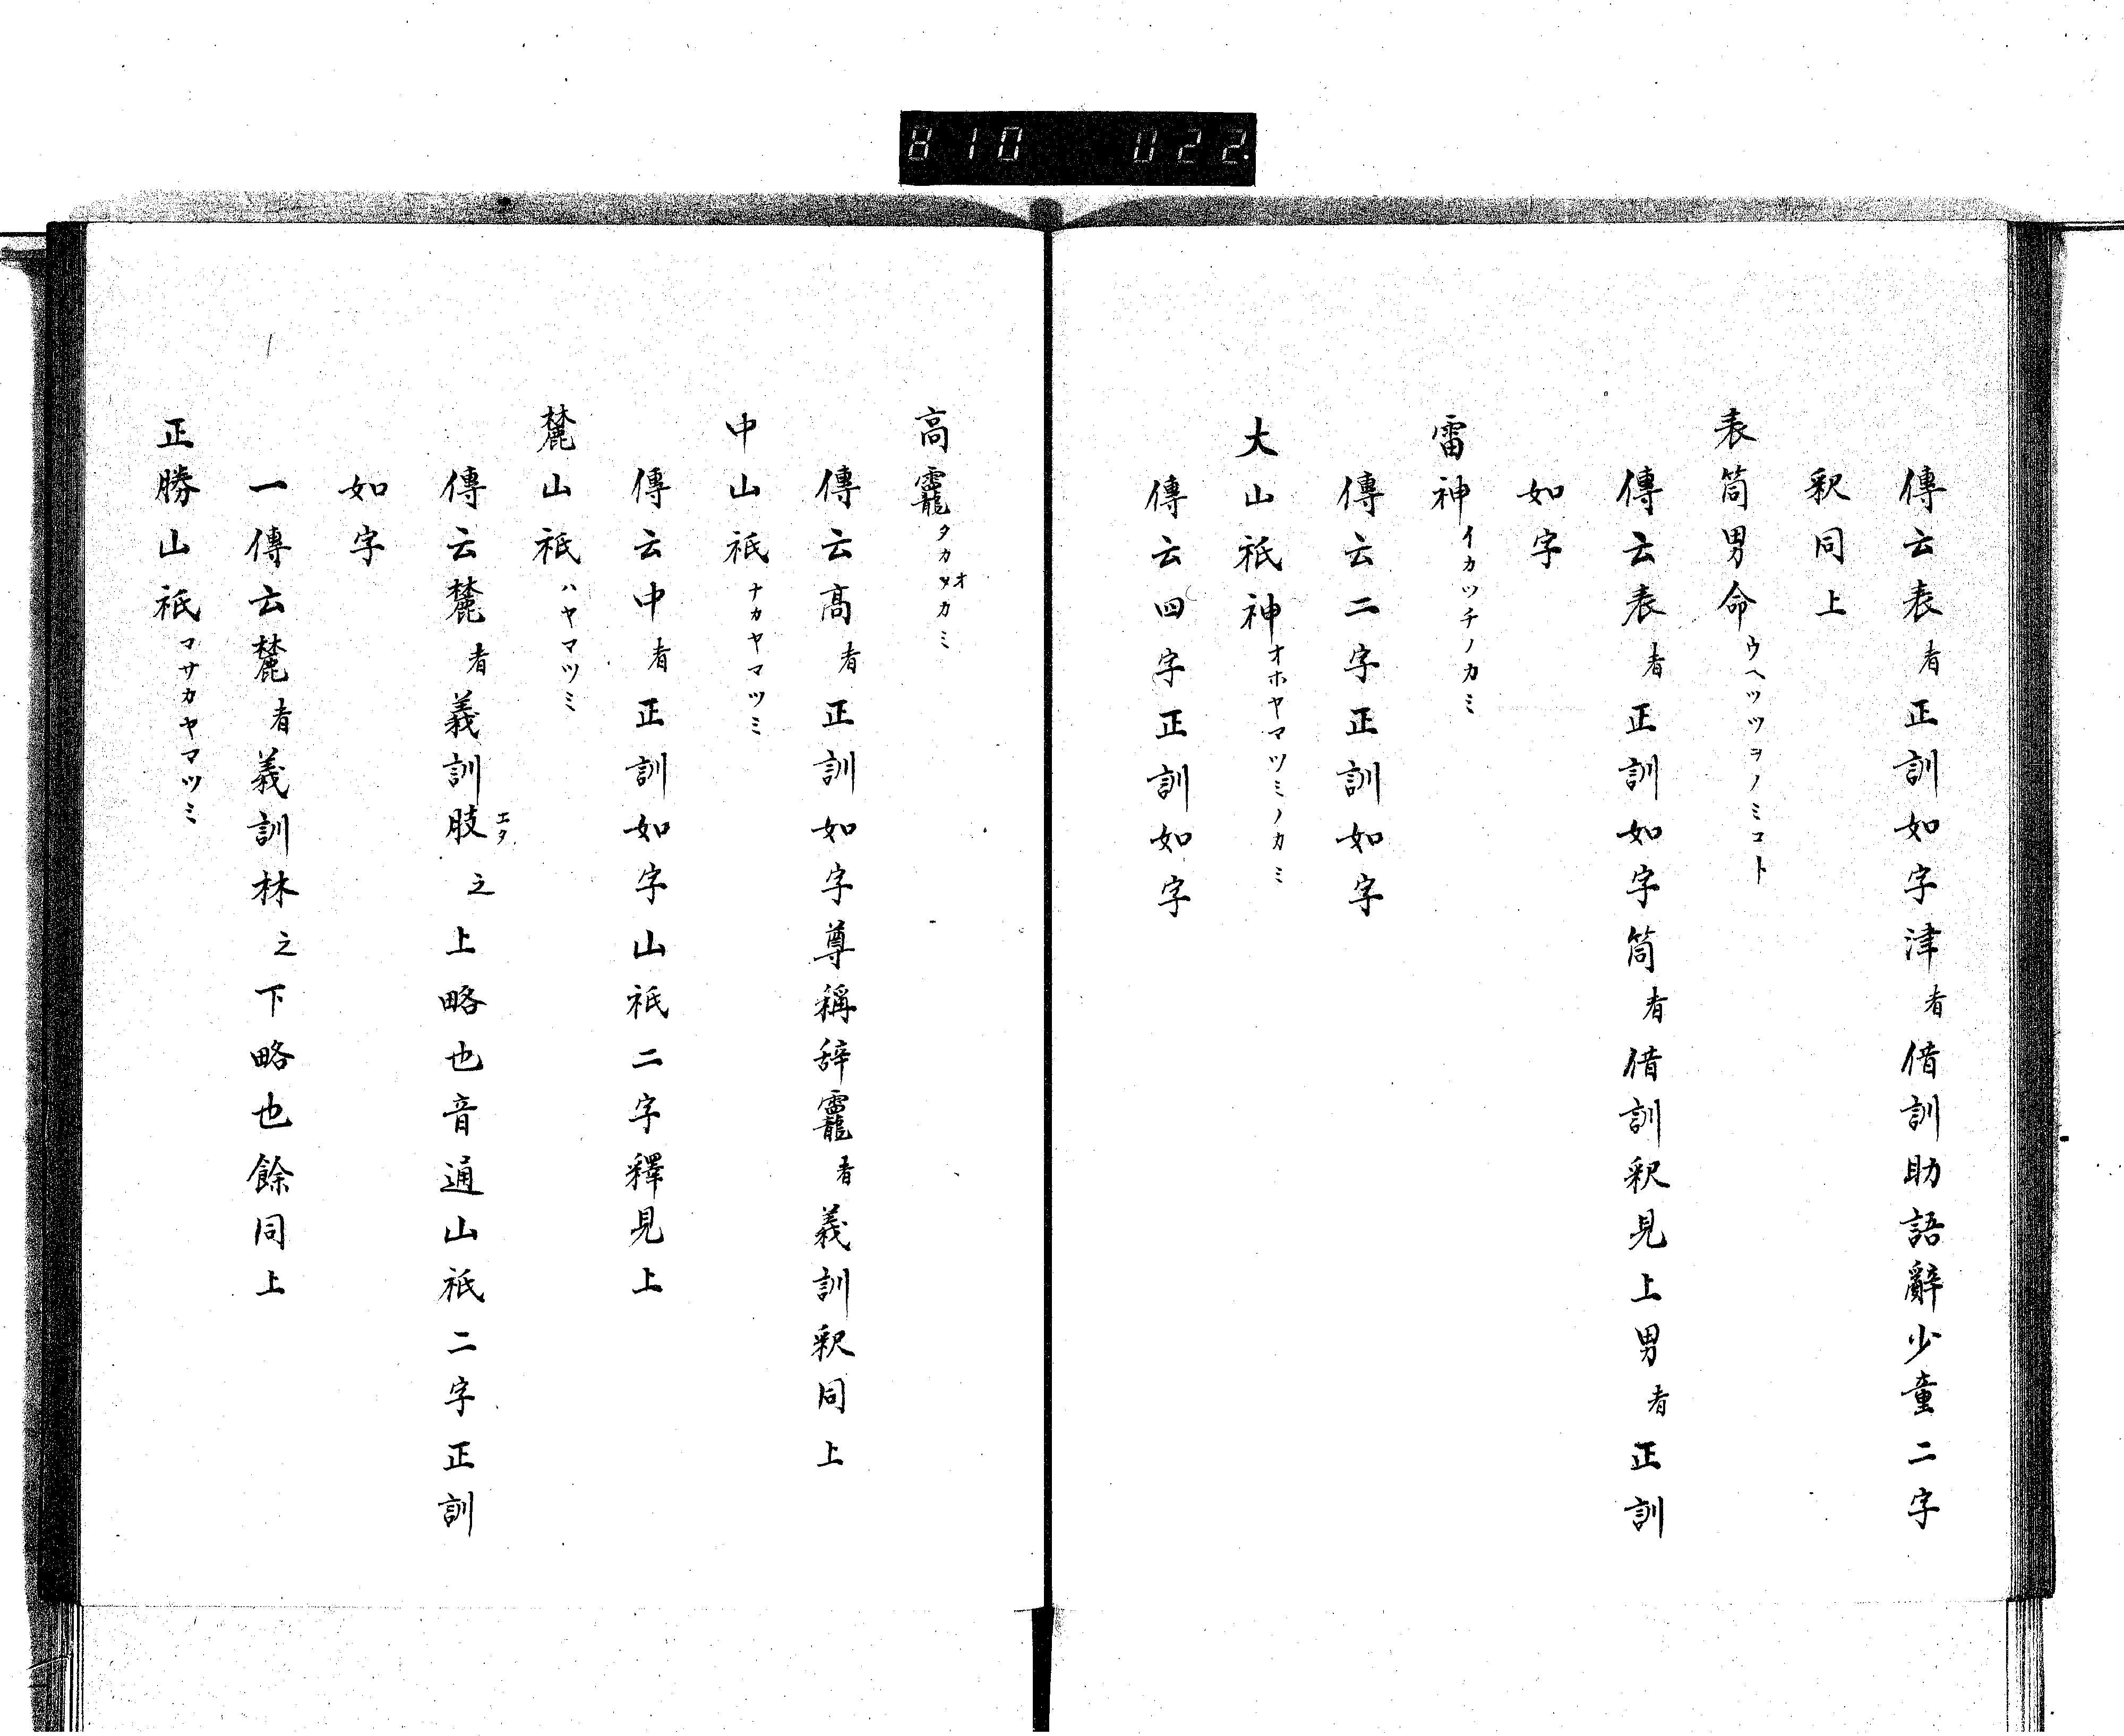 810 022.
傳云表者正訓如字津者借訓助語辭少童二字
釈同上
表筒男命ウヘツツヲノミコト
傳云表者正訓如字筒者借訓釈見上男者正訓
如字
雷神イカツチノカミ
傳云二字正訓如字
大山祇神オホヤマツミノカミ
傳云四字正訓如字
高龗タカオカミ
傳云高者正訓如字尊稱辞龗者義訓釈同上
中山祇ナカヤマツミ
傳云中者正訓如字山祇二字釋見上
麓山祇ハヤマツミ
傳云麓者義訓肢エタ之上略也音通山祇二字正訓
如字
一傳云麓者義訓林之下略也餘同上
正勝山祇マサカヤマツミ